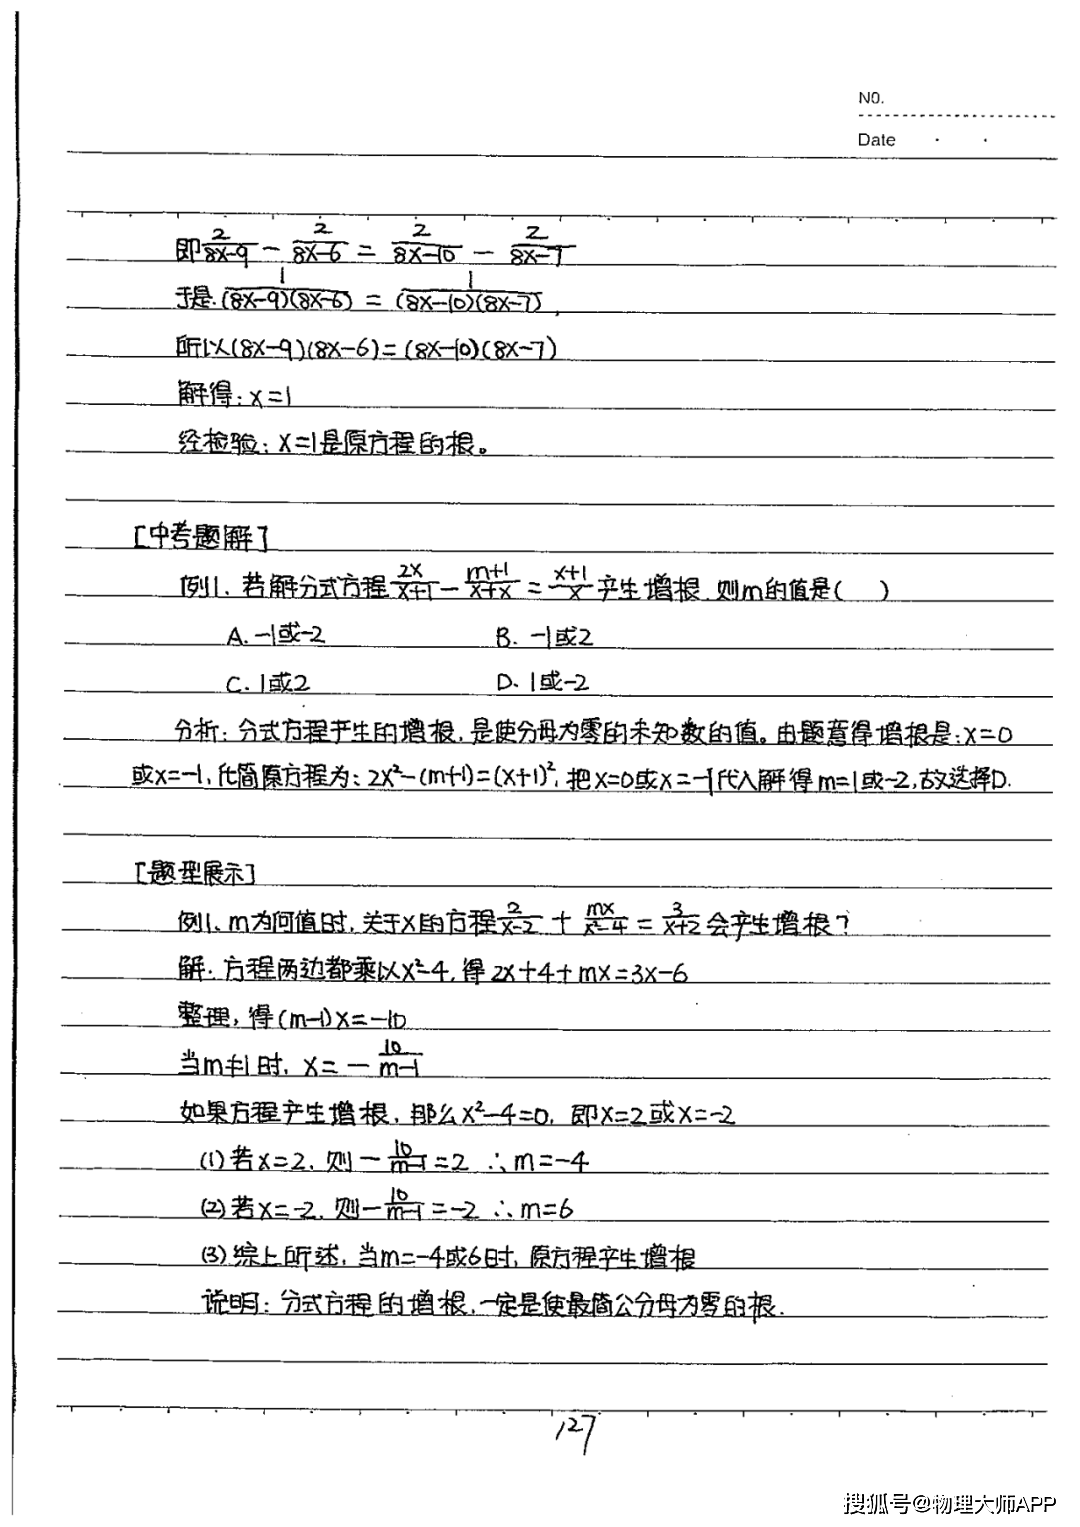 NO.
Date
即 2/(8X-9) - 2/(8X-6) = 2/(8X-10) - 2/(8X-7)
于是. 1/((8X-9)(8X-6)) = 1/((8X-10)(8X-7)),
所以(8X-9)(8X-6)=(8X-10)(8X-7)
解得:X=1
经检验:X=1是原方程的根。
[中考题解]
例1. 若解分式方程 2X/(X+1) - (m+1)/(X+X) = (X+1)/X 产生增根.则m的值是( )
A. -1或-2 B. -1或2
C. 1或2 D. 1或-2
分析:分式方程产生的增根,是使分母为零的未知数的值。由题意得增根是:X=0
或X=-1,化简原方程为:2X²-(m+1)=(X+1)²,把X=0或X=-1代入解得m=1或-2,故选择D.
[题型展示]
例1. m为何值时,关于X的方程 2/(X-2) + mx/(X²-4) = 3/(X+2) 会产生增根?
解:方程两边都乘以X²-4,得2X+4+mX=3X-6
整理,得(m-1)X=-10
当m≠1时, X=-10/(m-1)
如果方程产生增根,那么X²-4=0,即X=2或X=-2
(1)若X=2,则-10/(m-1)=2 ∴m=-4
(2)若X=-2,则-10/(m-1)=-2 ∴m=6
(3)综上所述,当m=-4或6时,原方程产生增根
说明:分式方程的增根,一定是使最简公分母为零的根.
127
搜狐号@物理大师APP